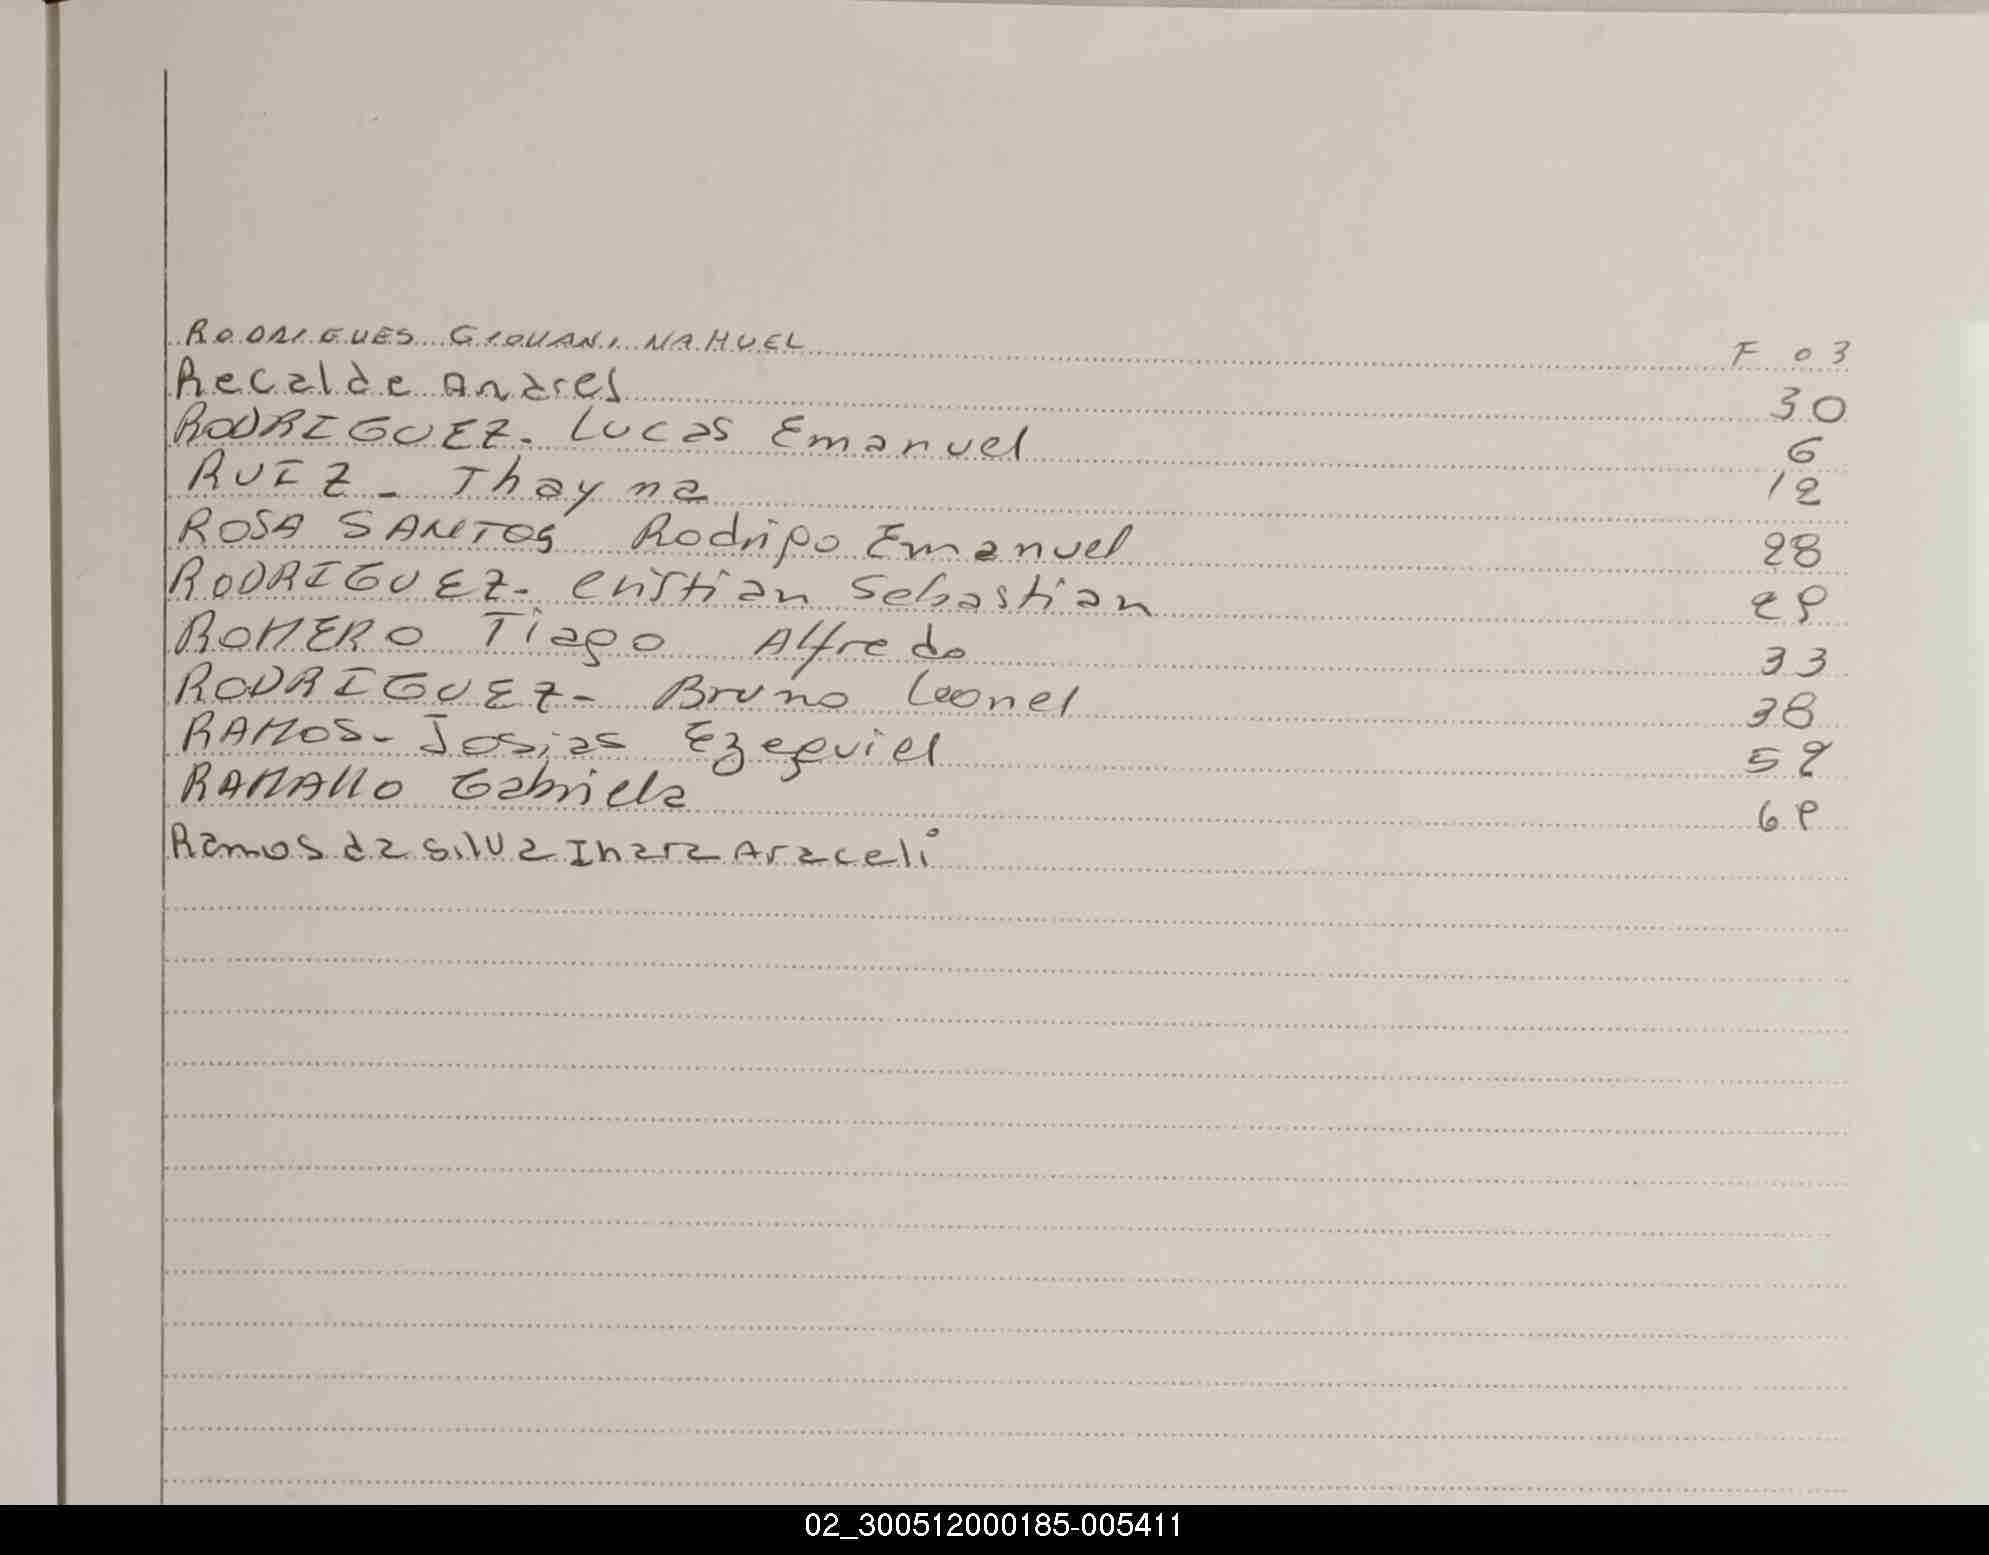 RODRIGUES GIOVANI NAHUEL F 03
Recalde Andres 30
RODRIGUEZ- Lucas Emanuel 6
RUIZ - Thayna 12
ROSA SANTOS Rodrigo Emanuel 28
RODRIGUEZ- Cristian Sebastian 29
ROMERO Tiago Alfredo 33
RODRIGUEZ- Bruno Leonel 38
RAMOS- Josias Ezequiel 59
RAMALLO Gabriela 69
Ramos da silva Inara Araceli
02_300512000185-005411